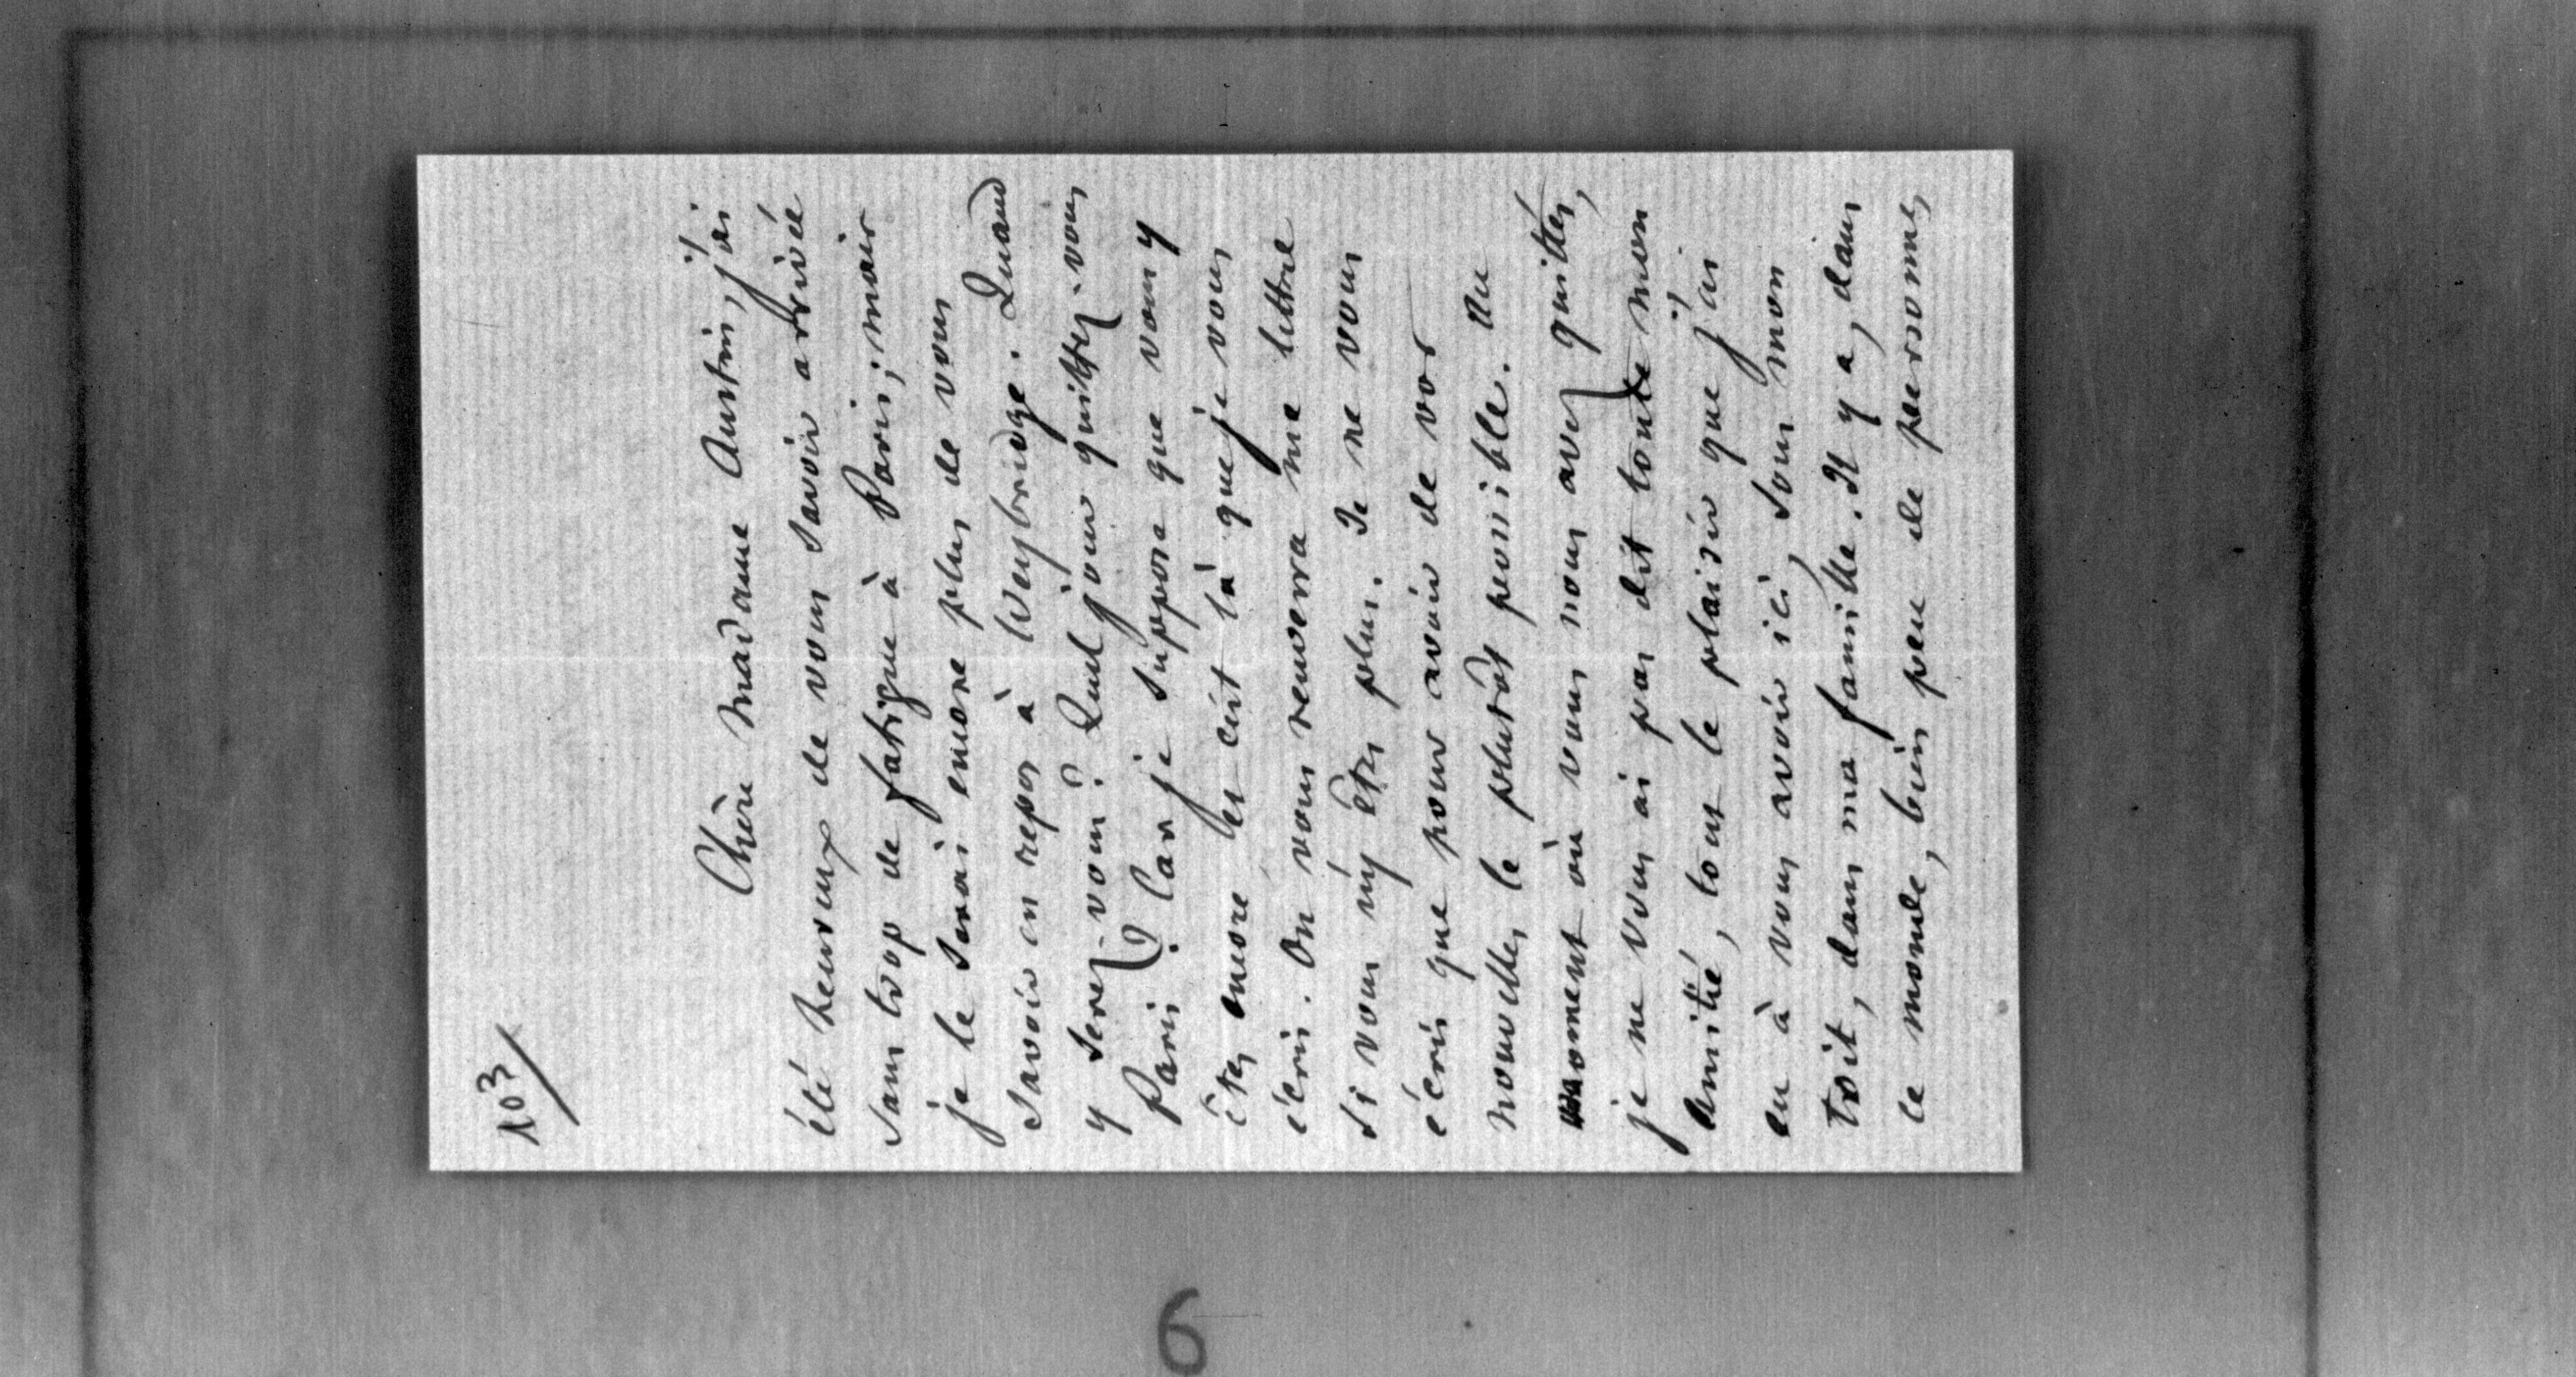 103/
Chère Madame Austin, j'ai
été heureux de vous savoir arrivée
sans trop de fatigue à Paris; mais
je le serai encore plus de vous
savoir en repos à Weybridge. Quand
y serez-vous? Quel jour quittez-vous
Paris? Car je suppose que vous y
êtes encore et c'est là que je vous
écris. On vous renverra ma lettre
si vous n'y êtes plus. Je ne vous
écris que pour avoir de vos
nouvelles le plutôt possible. Au
moment où vous nous avez quittés,
je ne vous ai pas dit toute mon
amitié, tout le plaisir que j'ai
eu à vous avoir ici, sous mon
toit, dans ma famille. Il y a, dans
le monde, bien peu de personnes
6